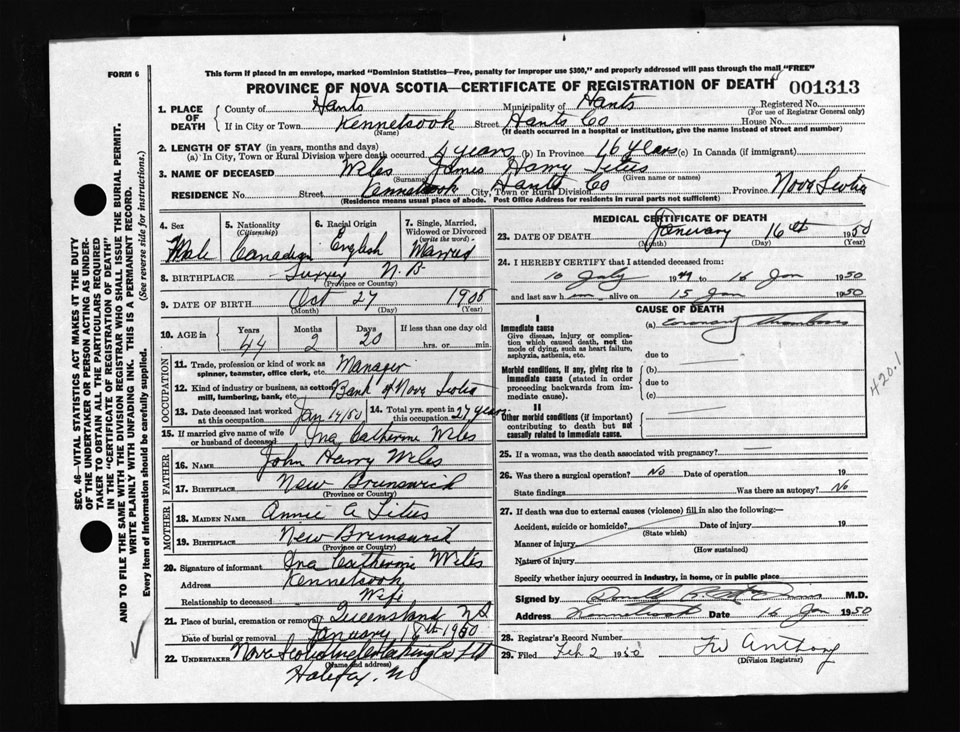 FORM 6
This form if placed in an envelope, marked "Dominion Statistics—Free, penalty for improper use $300," and properly addressed will pass through the mail "FREE"
PROVINCE OF NOVA SCOTIA—CERTIFICATE OF REGISTRATION OF DEATH 001313
1. PLACE OF DEATH { County of Hants Municipality of Hants Registered No.
(For use of Registrar General only)
If in City or Town Kennetcook Street Hants Co House No.
(Name) (If death occurred in a hospital or institution, give the name instead of street and number)
2. LENGTH OF STAY (in years, months and days)
(a) In City, Town or Rural Division where death occurred 4 years (b) In Province 16 years (c) In Canada (if immigrant)
3. NAME OF DECEASED Wiles James Harry Titus
(Surname) (Given name or names)
RESIDENCE No. Street Kennetcook City, Town or Rural Division Hants Co Province Nova Scotia
(Residence means usual place of abode. Post Office Address for residents in rural parts not sufficient)
4. Sex Male
5. Nationality (Citizenship) Canadian
6. Racial Origin English
7. Single, Married, Widowed or Divorced (write the word) Married
8. BIRTHPLACE Sussex N.B
(Province or Country)
9. DATE OF BIRTH Oct 27 1905
(Month) (Day) (Year)
10. AGE in { Years 44 Months 2 Days 20 If less than one day old hrs. or min.
OCCUPATION
11. Trade, profession or kind of work as spinner, teamster, office clerk, etc. Manager
12. Kind of industry or business, as cotton mill, lumbering, bank, etc. Bank of Nova Scotia
13. Date deceased last worked at this occupation Jan 14/50 14. Total yrs. spent in this occupation 27 years
15. If married give name of wife or husband of deceased Ina Catherine Wiles
FATHER
16. NAME John Harry Wiles
17. BIRTHPLACE New Brunswick
(Province or Country)
MOTHER
18. MAIDEN NAME Annie A Titus
19. BIRTHPLACE New Brunswick
(Province or Country)
20. Signature of informant Ina Catherine Wiles
Address Kennetcook
Relationship to deceased Wife
21. Place of burial, cremation or removal Queensland NS
Date of burial or removal January 1950
22. UNDERTAKER Nova Scotia Undertaking Co Ltd
(Name and address)
Halifax, NS
MEDICAL CERTIFICATE OF DEATH
23. DATE OF DEATH January 16th 1950
(Month) (Day) (Year)
24. I HEREBY CERTIFY that I attended deceased from:
10 July 1949 to 16 Jan 1950
and last saw him alive on 15 Jan 1950
CAUSE OF DEATH
I
Immediate cause
Give disease, injury or complication which caused death, not the mode of dying, such as heart failure, asphyxia, asthenia, etc.
(a) Coronary Thrombosis
due to
Morbid conditions, if any, giving rise to immediate cause (stated in order proceeding backwards from immediate cause).
(b)
due to
(c)
420.1
II
Other morbid conditions (if important) contributing to death but not causally related to immediate cause.
25. If a woman, was the death associated with pregnancy?
26. Was there a surgical operation? No Date of operation 19
State findings Was there an autopsy? No
27. If death was due to external causes (violence) fill in also the following:
Accident, suicide or homicide? Date of injury 19
(State which)
Manner of injury
(How sustained)
Nature of injury
Specify whether injury occurred in industry, in home, or in public place
Signed by M.D.
Address Date 16 Jan 1950
28. Registrar's Record Number
29. Filed Feb 2 1950 Anthony
(Division Registrar)
SEC. 46—VITAL STATISTICS ACT MAKES IT THE DUTY
OF THE UNDERTAKER OR PERSON ACTING AS UNDER-
TAKER TO OBTAIN ALL THE PARTICULARS REQUIRED
IN THE "CERTIFICATE OF REGISTRATION OF DEATH"
AND TO FILE THE SAME WITH THE DIVISION REGISTRAR WHO SHALL ISSUE THE BURIAL PERMIT.
WRITE PLAINLY WITH UNFADING INK. THIS IS A PERMANENT RECORD.
Every item of Information should be carefully supplied. (See reverse side for instructions.)